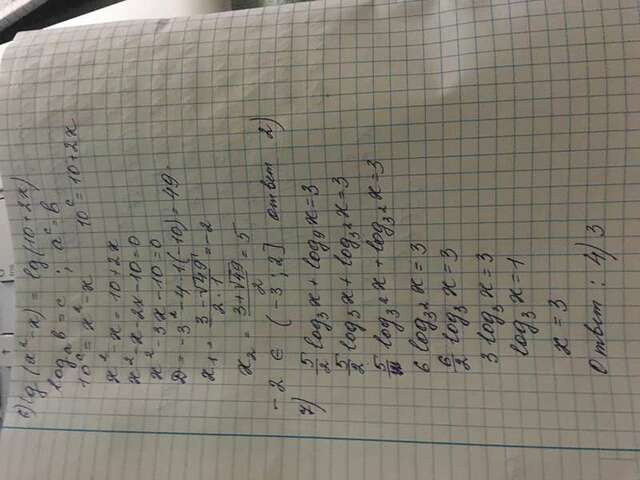 6) lg (x² - x) = lg (10 + 2x)
logₐb = c ; aᶜ = b
10ᶜ = x² - x 10ᶜ = 10 + 2x
x² - x = 10 + 2x
x² - x - 2x - 10 = 0
x² - 3x - 10 = 0
D = -3² - 4·1(-10) = 49
x₁ = (3 - √49)/(2·1) = -2
x₂ = (3 + √49)/2 = 5
-2 ∈ (-3; 2] ответ 2)
7) 5/2 log₃x + log₉x = 3
5/2 log₃x + log₃²x = 3
5 log₃²x + log₃²x = 3
6 log₃²x = 3
6/2 log₃x = 3
3 log₃x = 3
log₃x = 1
x = 3
Ответ: 4) 3